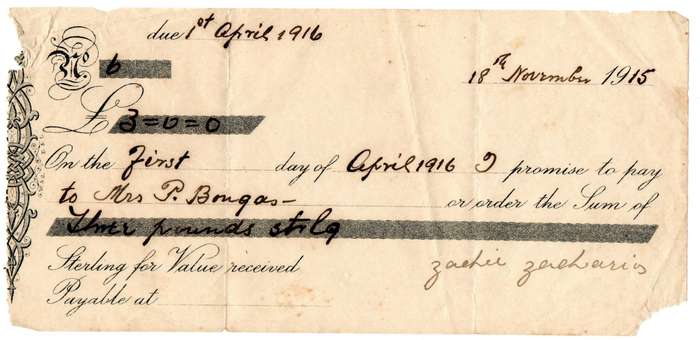 due 1st April 1916
No 6
18th November 1915
£ 3=0=0
On the First day of April 1916 I promise to pay
to Mrs P. Bongas- or order the Sum of
Three pounds strlg
Sterling for Value received
zachie zacharias
Payable at